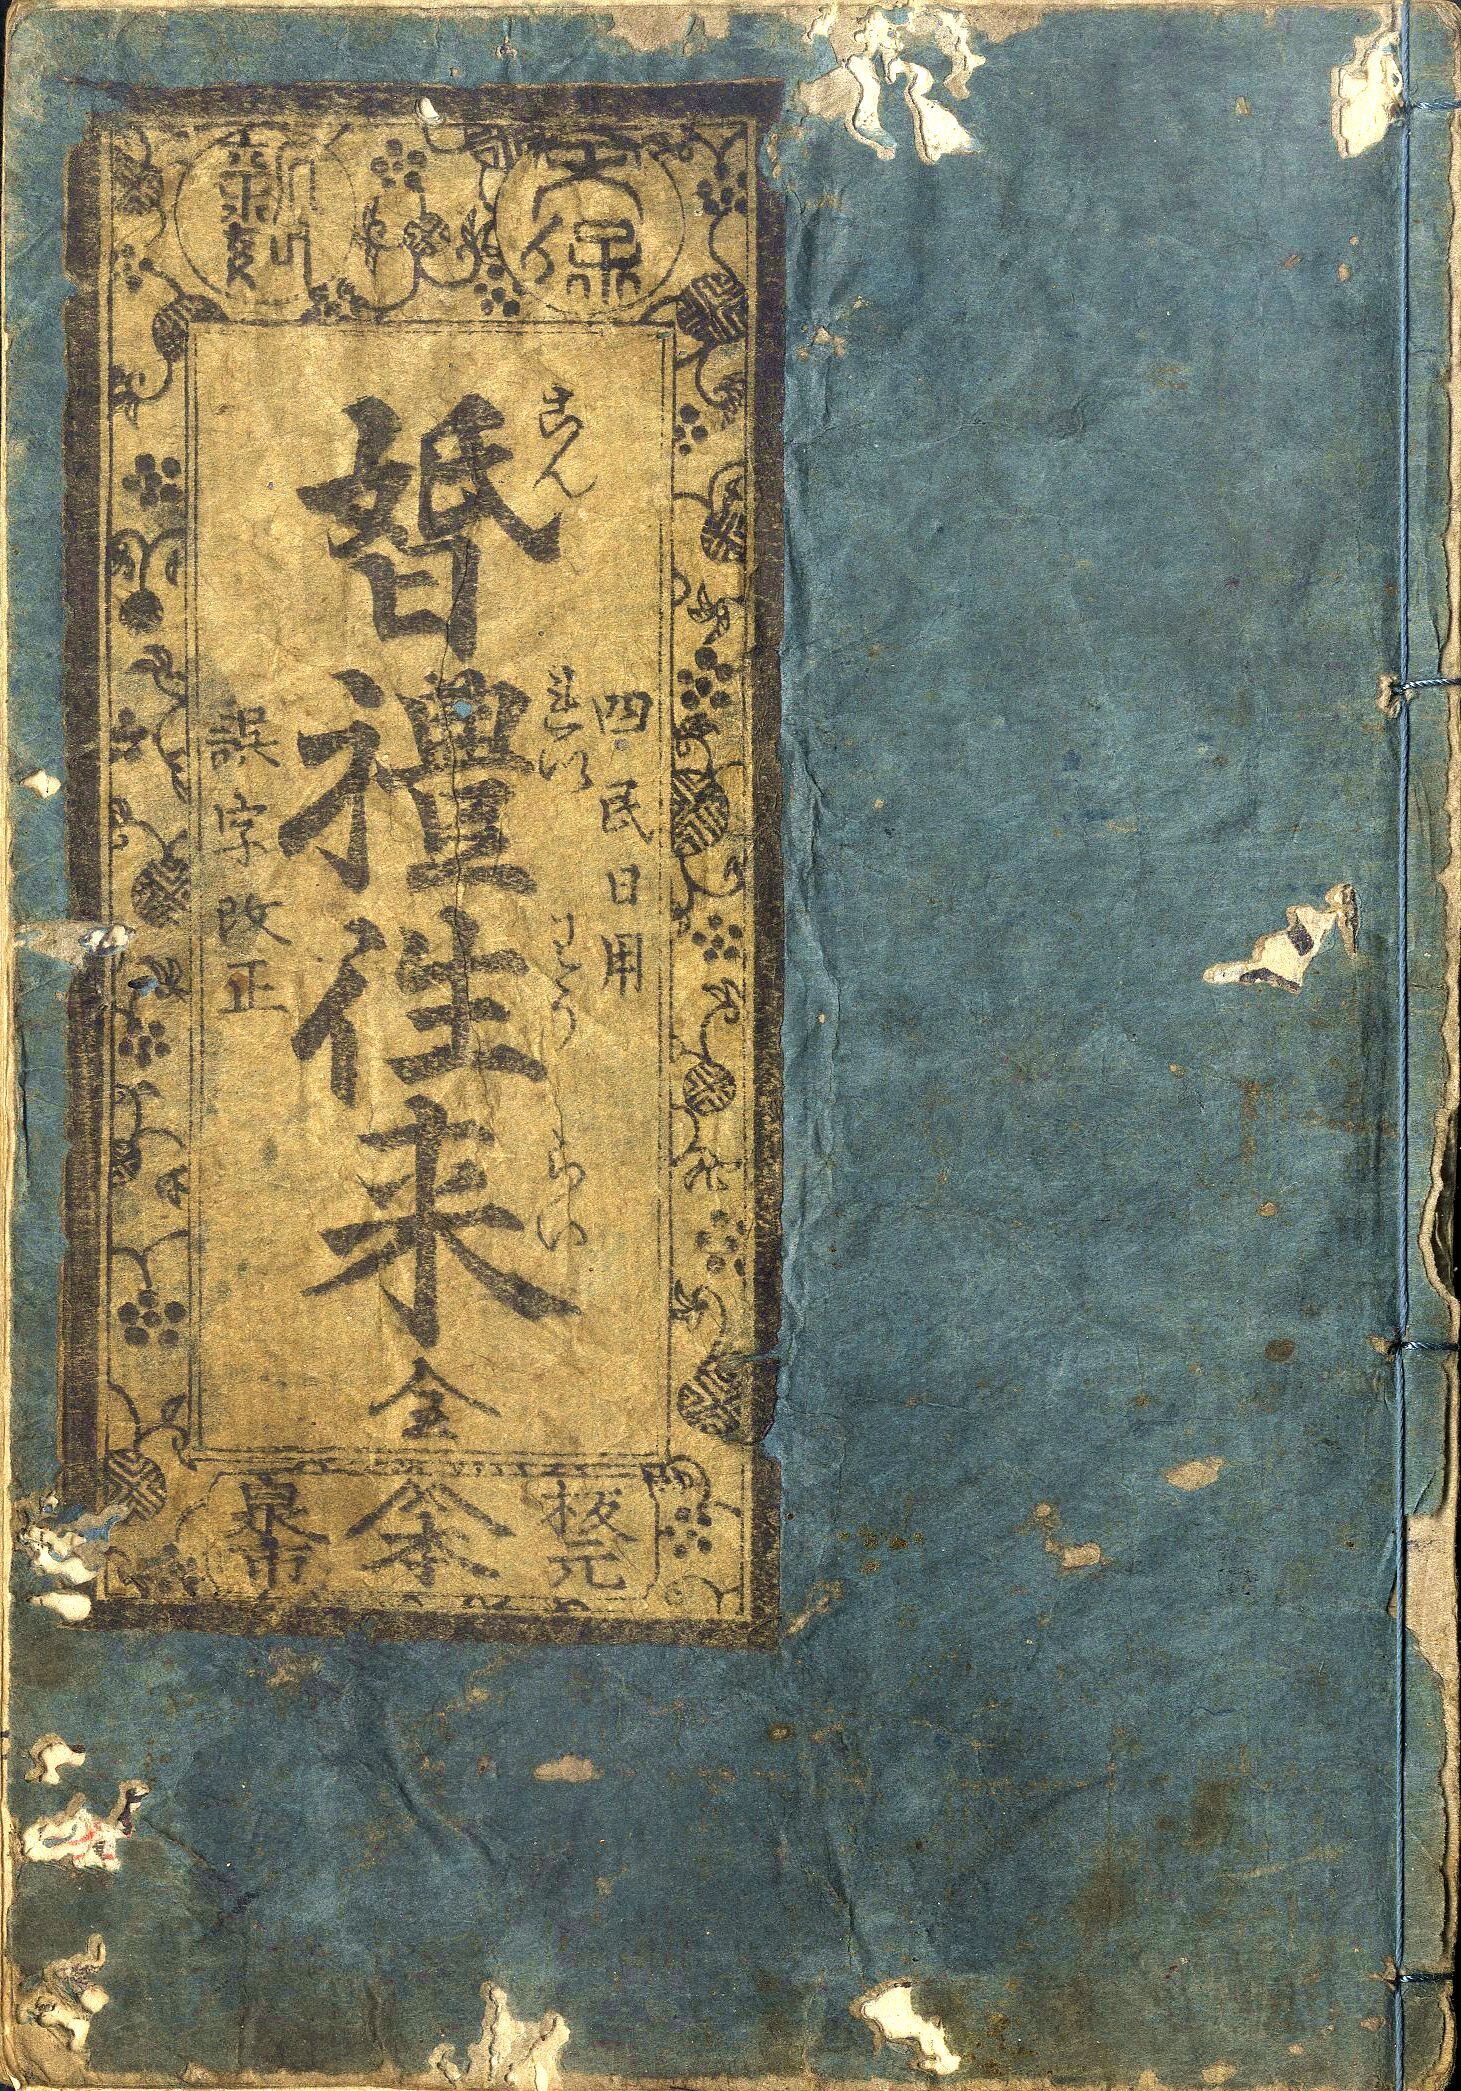 天保
新刻
四民日用
こん れい わう らい
婚禮徃来 全
誤字改正
板元
泉市